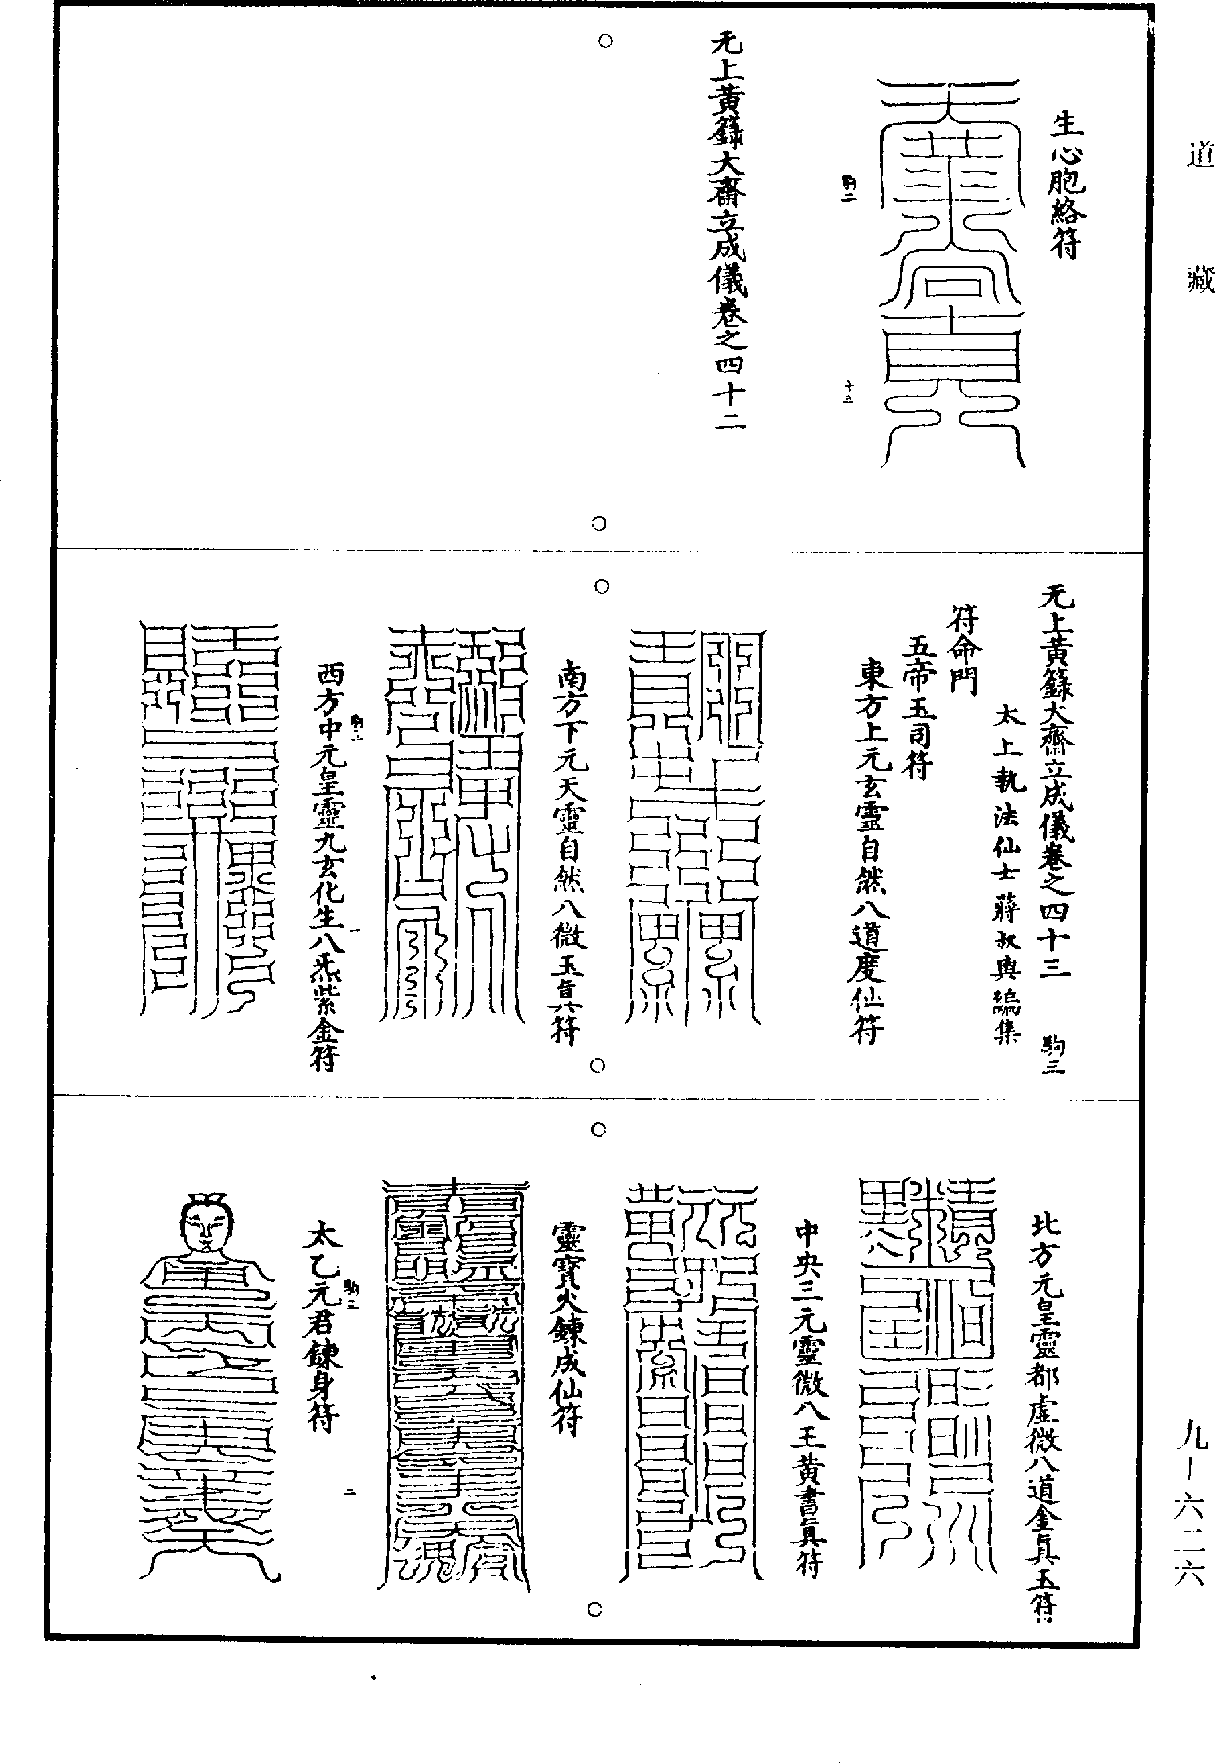 道藏
生心胞絡符
駒二
十五
无上黃籙大齋立成儀卷之四十二
无上黃籙大齋立成儀卷之四十三
駒三
太上執法仙士蔣叔輿編集
符命門
五帝玉司符
東方上元玄靈自然八道度仙符
南方下元天靈自然八微玉眞符
西方中元皇靈九玄化生八炁紫金符
駒三
一
北方元皇靈都虛微八道金眞玉符
中央三元靈微八王黃書眞符
靈寶火鍊成仙符
太乙元君鍊身符
駒三
二
九-六二六